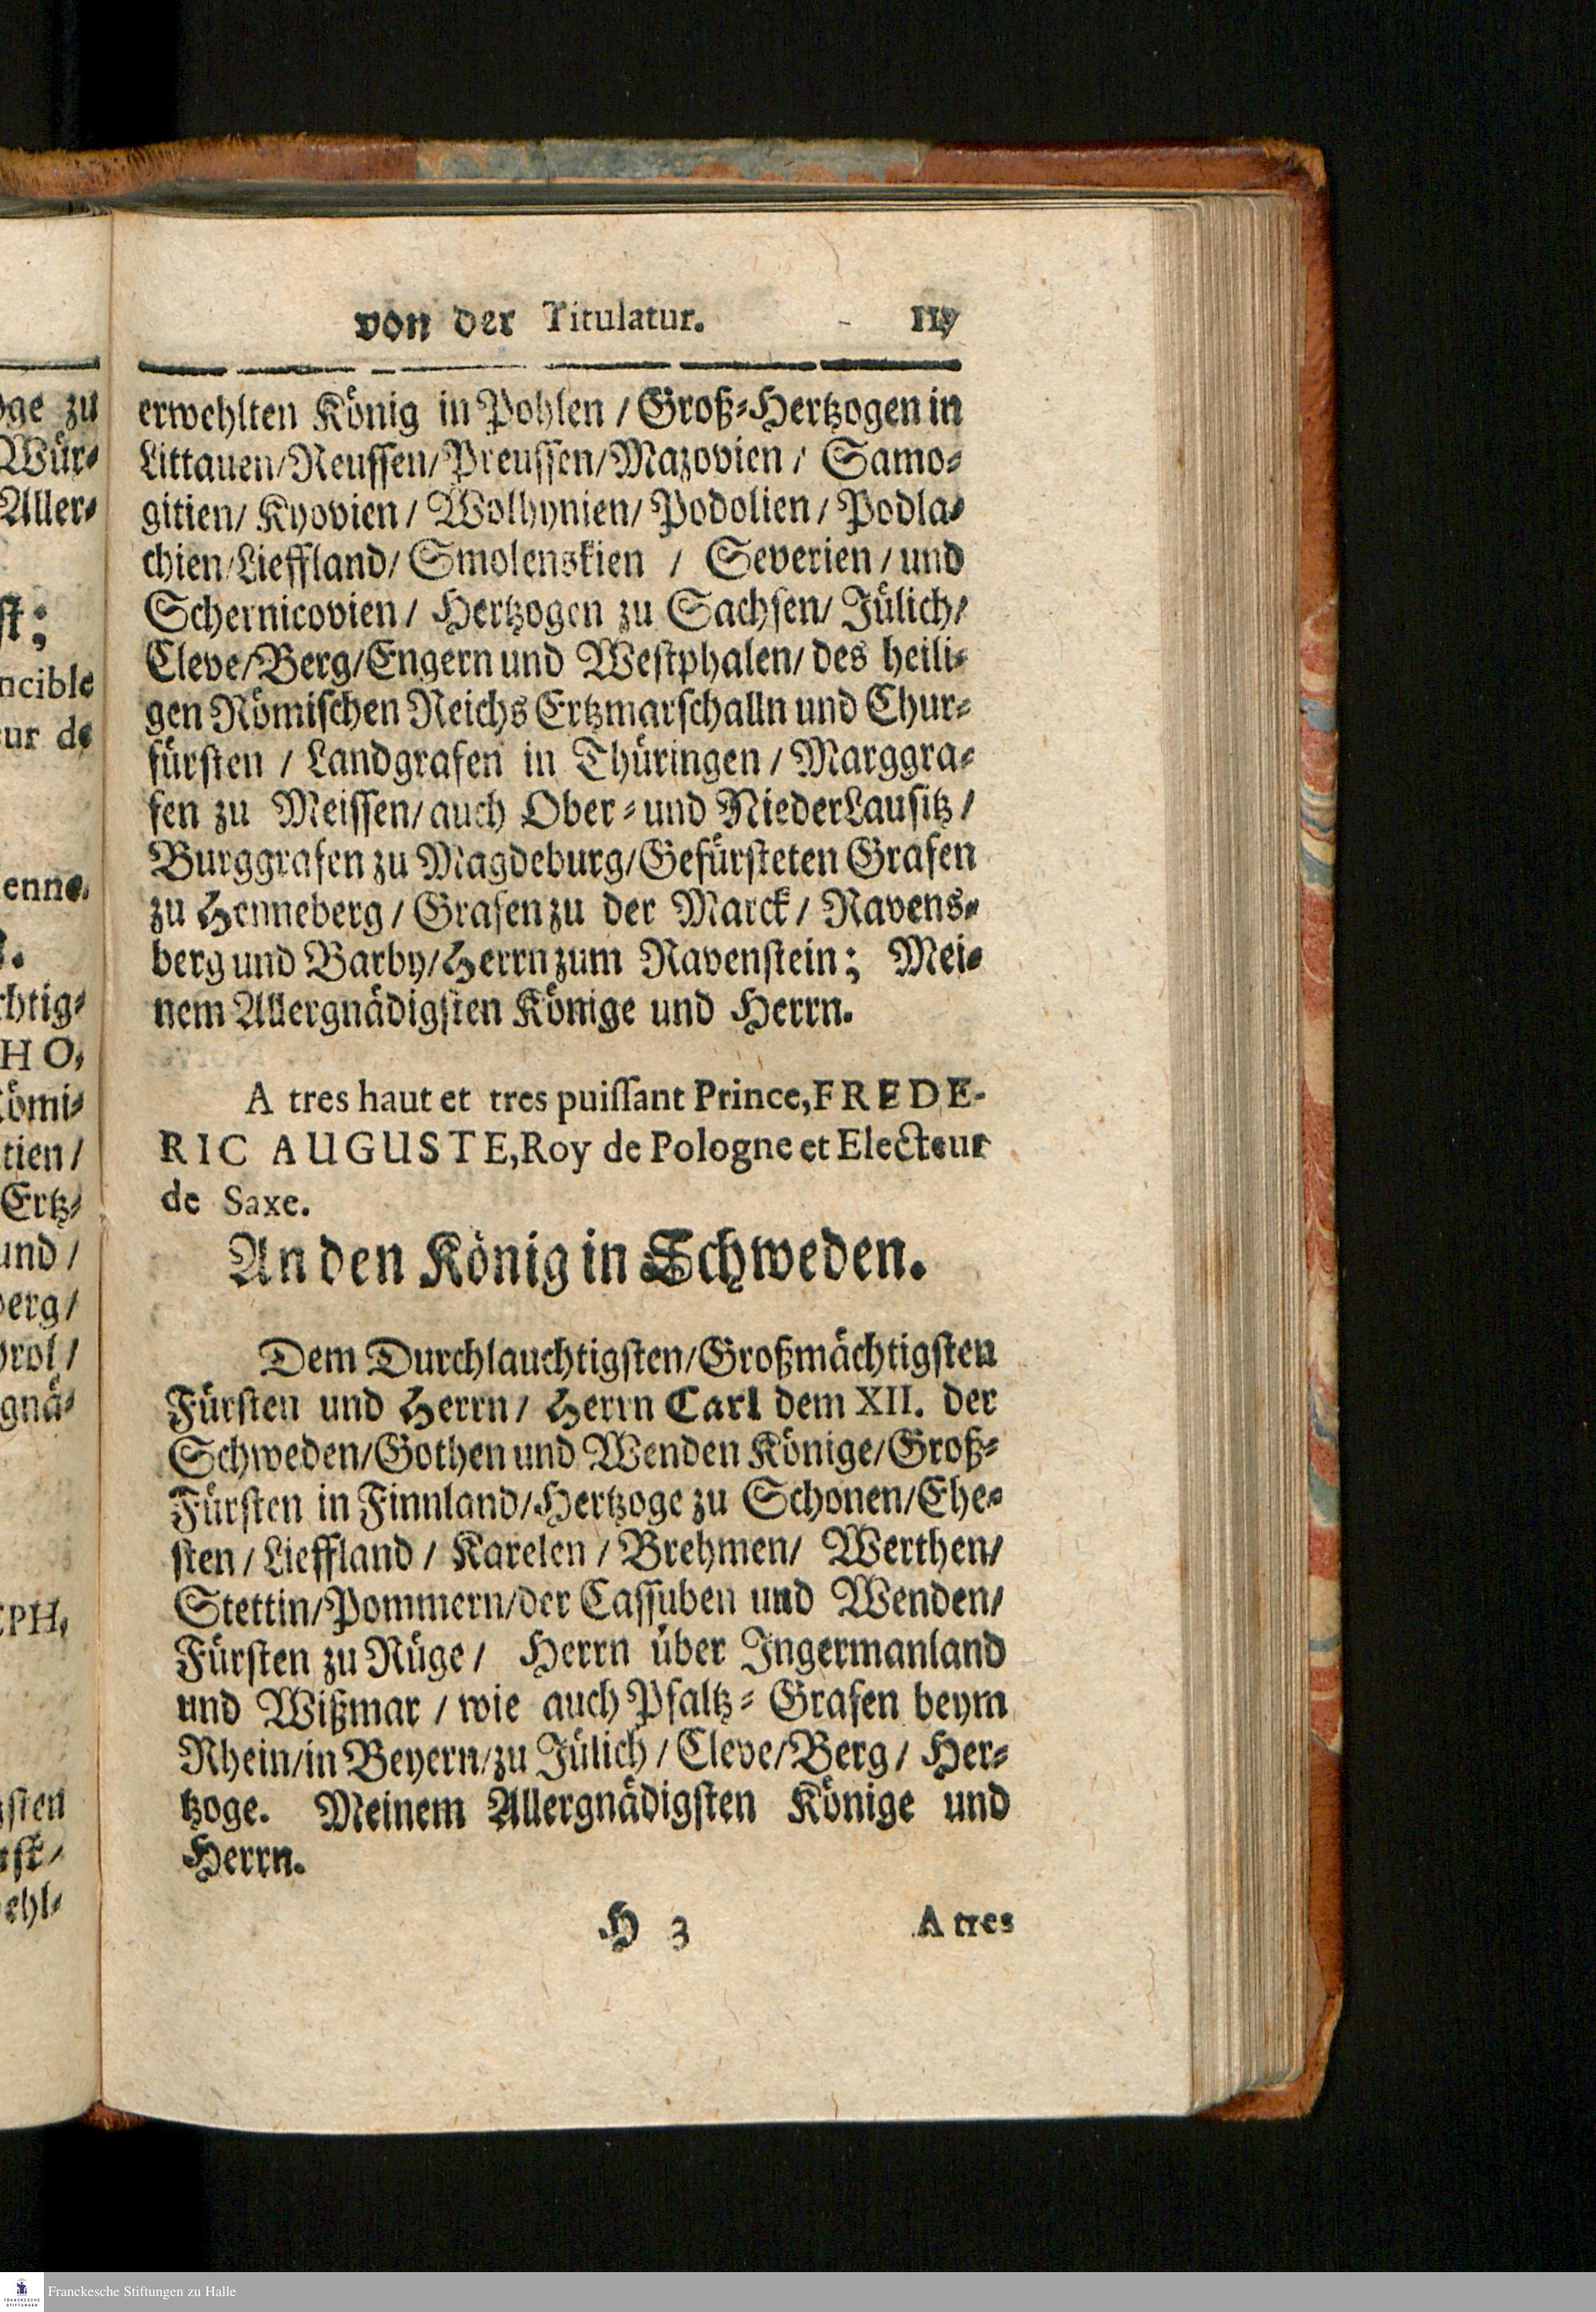 von der Titulatur.
erwehlten König in Pohlen / Groß-Hertzogen in
Littauen/Reussen/Preussen/Mazovien / Samo-
gitien/ Kyovien / Wolhynien/ Podolien / Podla-
chien/Lieffland/ Smolenskien / Severien / und
Schernicovien / Hertzogen zu Sachsen/ Jülich/
Cleve/Berg/Engern und Westphalen/ des heili-
gen Römischen Reichs Ertzmarschalln und Chur-
fürsten / Landgrafen in Thüringen / Marggra-
fen zu Meissen/ auch Ober- und NiederLausitz /
Burggrafen zu Magdeburg/Gefürsteten Grafen
zu Henneberg / Grafen zu der Marck / Ravens-
berg und Barby/Herrn zum Ravenstein; Mei-
nem Allergnädigsten Könige und Herrn.
A tres haut et tres puissant Prince, FREDE-
RIC AUGUSTE, Roy de Pologne et Electeur
de Saxe.
An den König in Schweden.
Dem Durchlauchtigsten/Großmächtigsten
Fürsten und Herrn/ Herrn Carl dem XII. der
Schweden/Gothen und Wenden Könige/Groß-
Fürsten in Finnland/Hertzoge zu Schonen/Ehe-
sten / Lieffland / Karelen / Brehmen/ Werthen/
Stettin/Pommern/der Cassuben und Wenden/
Fürsten zu Rüge / Herrn über Ingermanland
und Wißmar / wie auch Pfaltz-Grafen beym
Rhein/in Beyern/zu Jülich / Cleve/Berg / Her-
tzoge. Meinem Allergnädigsten Könige und
Herrn.
H 3 A tres
oge zu
Wür-
Aller-
st;
ncible
ur de
enne.
chtig-
HO,
ömi-
tien /
Ertz-
und /
berg /
yrol /
gnä-
EPH,
gsten
ehl-
Franckesche Stiftungen zu Halle